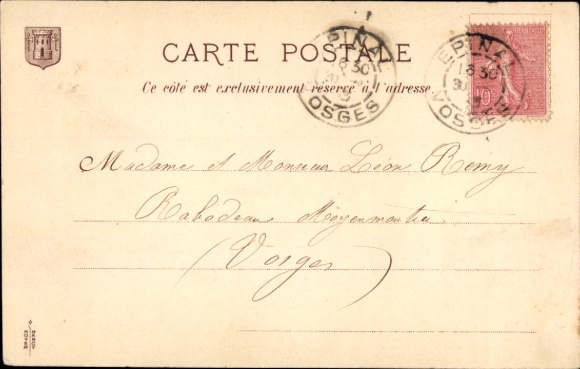 CARTE POSTALE
Ce côté est exclusivement réservé à l'adresse.
EPINAL
18 30
VOSGES
EPINAL
18 30
VOSGES
10c
Madame et Monsieur Léon Remy
Rabodeau Moyenmoutier
(Vosges)